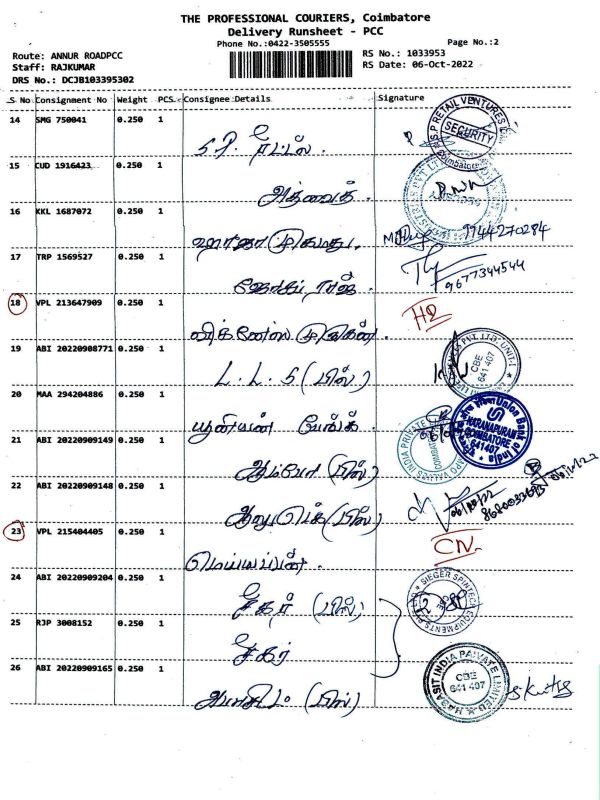 THE PROFESSIONAL COURIERS, Coimbatore
Delivery Runsheet - PCC
Phone No.:0422-3505555
Page No.:2
Route: ANNUR ROADPCC
RS No.: 1033953
Staff: RAJKUMAR
RS Date: 06-Oct-2022
DRS No.: DCJB103395302
S No Consignment No Weight PCS Consignee Details Signature
14 SMG 750041 0.250 1
S.P. ரீட்டல்.
S.P RETAIL VENTURES
SECURITY
Coimbatore
15 CUD 1916423 0.250 1
அத்வைத்.
16 KKL 1687072 0.250 1
9944270284
17 TRP 1569527 0.250 1
ஜோசப் ராஜ்.
9677344544
18 VPL 213647909 0.250 1
HD
19 ABI 20220908771 0.250 1
L. L. S (பில்)
PVT. LTD. UNIT-I
CBE
641 407
20 MAA 294204886 0.250 1
யூனியன் பேங்க்.
Union Bank of India
KARANAPURAM
COIMBATORE
641407
21 ABI 20220909149 0.250 1
ஆம்போ (பில்)
AMPO VALVES INDIA PRIVATE
COIMBATORE
22 ABI 20220909148 0.250 1
(பில்)
06/10/22
23 VPL 215404405 0.250 1
CN
மெய்யப்பன்.
24 ABI 20220909204 0.250 1
சீகர் (பில்)
SIEGER SPINTECH EQUIPMENTS
25 RJP 3008152 0.250 1
சீகர்
26 ABI 20220909165 0.250 1
(பில்)
HABASIT INDIA PRIVATE LIMITED
CBE
641 407